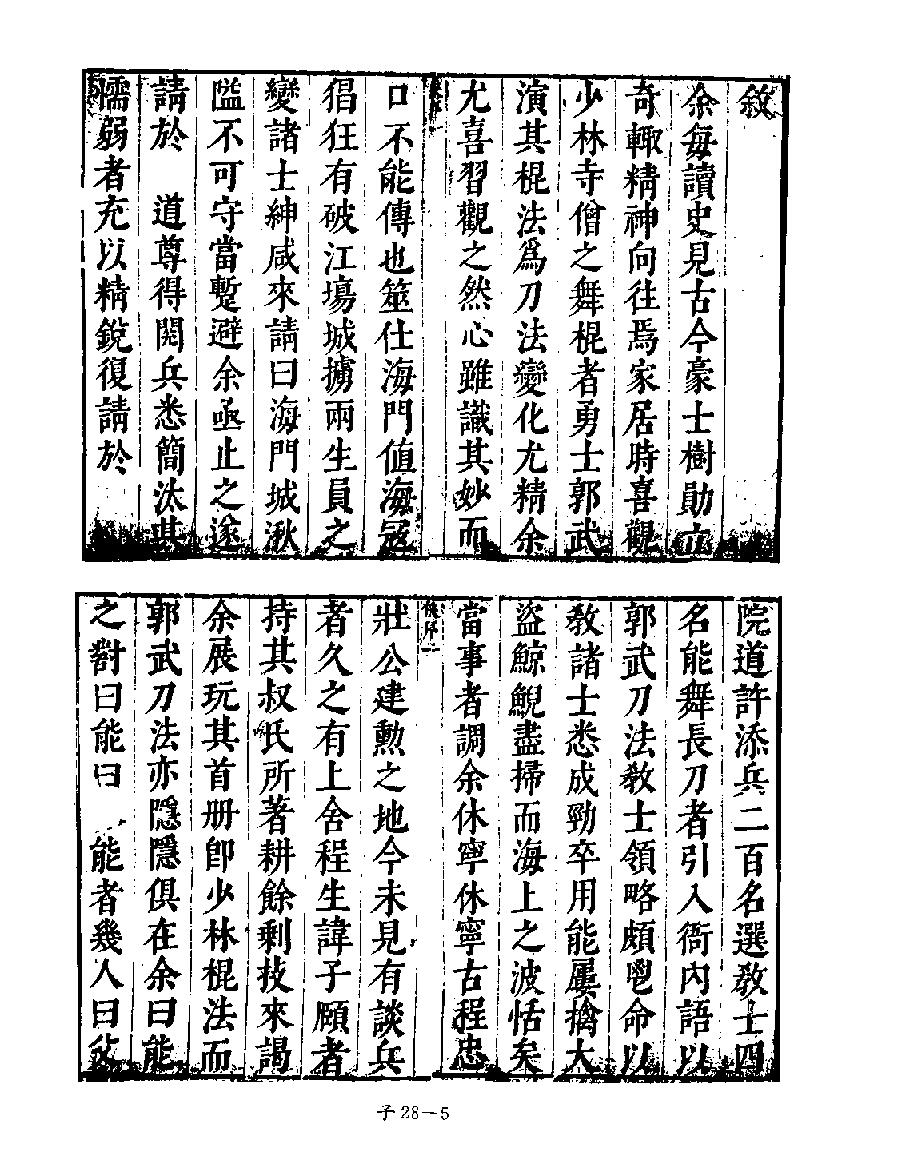 敘
余每讀史見古今豪士樹勛立
奇輙精神向往焉家居時喜觀
少林寺僧之舞棍者勇士郭武
演其棍法爲刀法變化尤精余
尤喜習觀之然心雖識其妙而
口不能傳也筮仕海門値海冦
猖狂有破江塲城擄兩生員之
變諸士紳咸來請曰海門城湫
隘不可守當蹔避余亟止之遂
請於　道尊得閱兵悉簡汰其
懦弱者充以精銳復請於
院道許添兵二百名選教士四
名能舞長刀者引入衙內語以
郭武刀法教士領略頗鬯命以
教諸士悉成勁卒用能屢擒大
盜鯨鯢盡掃而海上之波恬矣
當事者調余休寧休寧古程忠
壯公建勲之地今未見有談兵
者久之有上舍程生諱子頤者
持其叔氏所著耕餘剩技來謁
余展玩其首册卽少林棍法而
郭武刀法亦隱隱俱在余曰能
之對曰能曰　能者幾人曰
子28－5